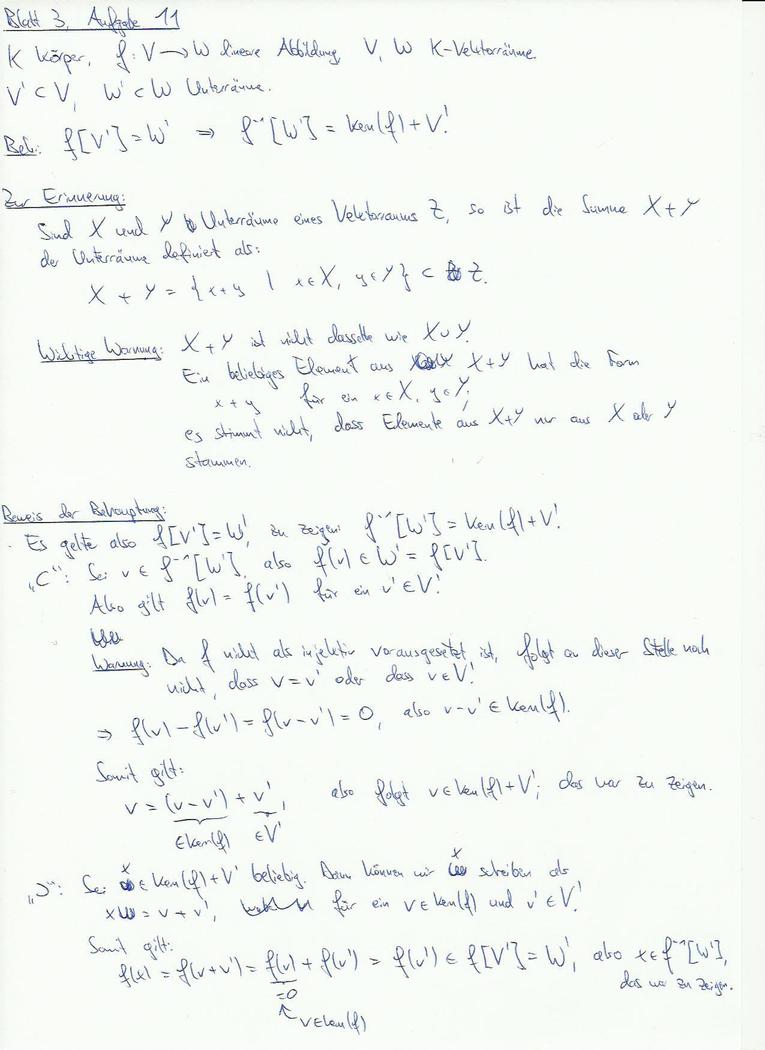 Blatt 3, Aufgabe 11
K Körper, f: V → W lineare Abbildung, V, W K-Vektorräume.
V' ⊂ V, W' ⊂ W Unterräume.
Beh.: f[V'] = W' ⇒ f⁻¹[W'] = ker(f) + V'.
Zur Erinnerung:
Sind X und Y Unterräume eines Vektorraums Z, so ist die Summe X+Y
der Unterräume definiert als:
X + Y = {x+y | x∈X, y∈Y} ⊂ Z.
Wichtige Warnung: X+Y ist nicht dasselbe wie X∪Y.
Ein beliebiges Element aus X+Y hat die Form
x+y für ein x∈X, y∈Y;
es stimmt nicht, dass Elemente aus X+Y nur aus X oder Y
stammen.
Beweis der Behauptung:
Es gelte also f[V'] = W', zu zeigen: f⁻¹[W'] = ker(f) + V'.
„⊂“: Sei v ∈ f⁻¹[W'], also f(v) ∈ W' = f[V'].
Also gilt f(v) = f(v') für ein v'∈V'.
Warnung: Da f nicht als injektiv vorausgesetzt ist, folgt an dieser Stelle noch
nicht, dass v=v' oder dass v∈V'.
⇒ f(v) - f(v') = f(v-v') = 0, also v-v' ∈ ker(f).
Somit gilt:
v = (v-v') + v', also folgt v∈ker(f)+V'; das war zu zeigen.
∈ker(f) ∈V'
„⊃“: Sei x ∈ ker(f)+V' beliebig. Dann können wir x schreiben als
x = v + v', für ein v∈ker(f) und v'∈V'.
Somit gilt:
f(x) = f(v+v') = f(v) + f(v') = f(v') ∈ f[V'] = W', also x∈f⁻¹[W'],
=0 das war zu zeigen.
↑ v∈ker(f)